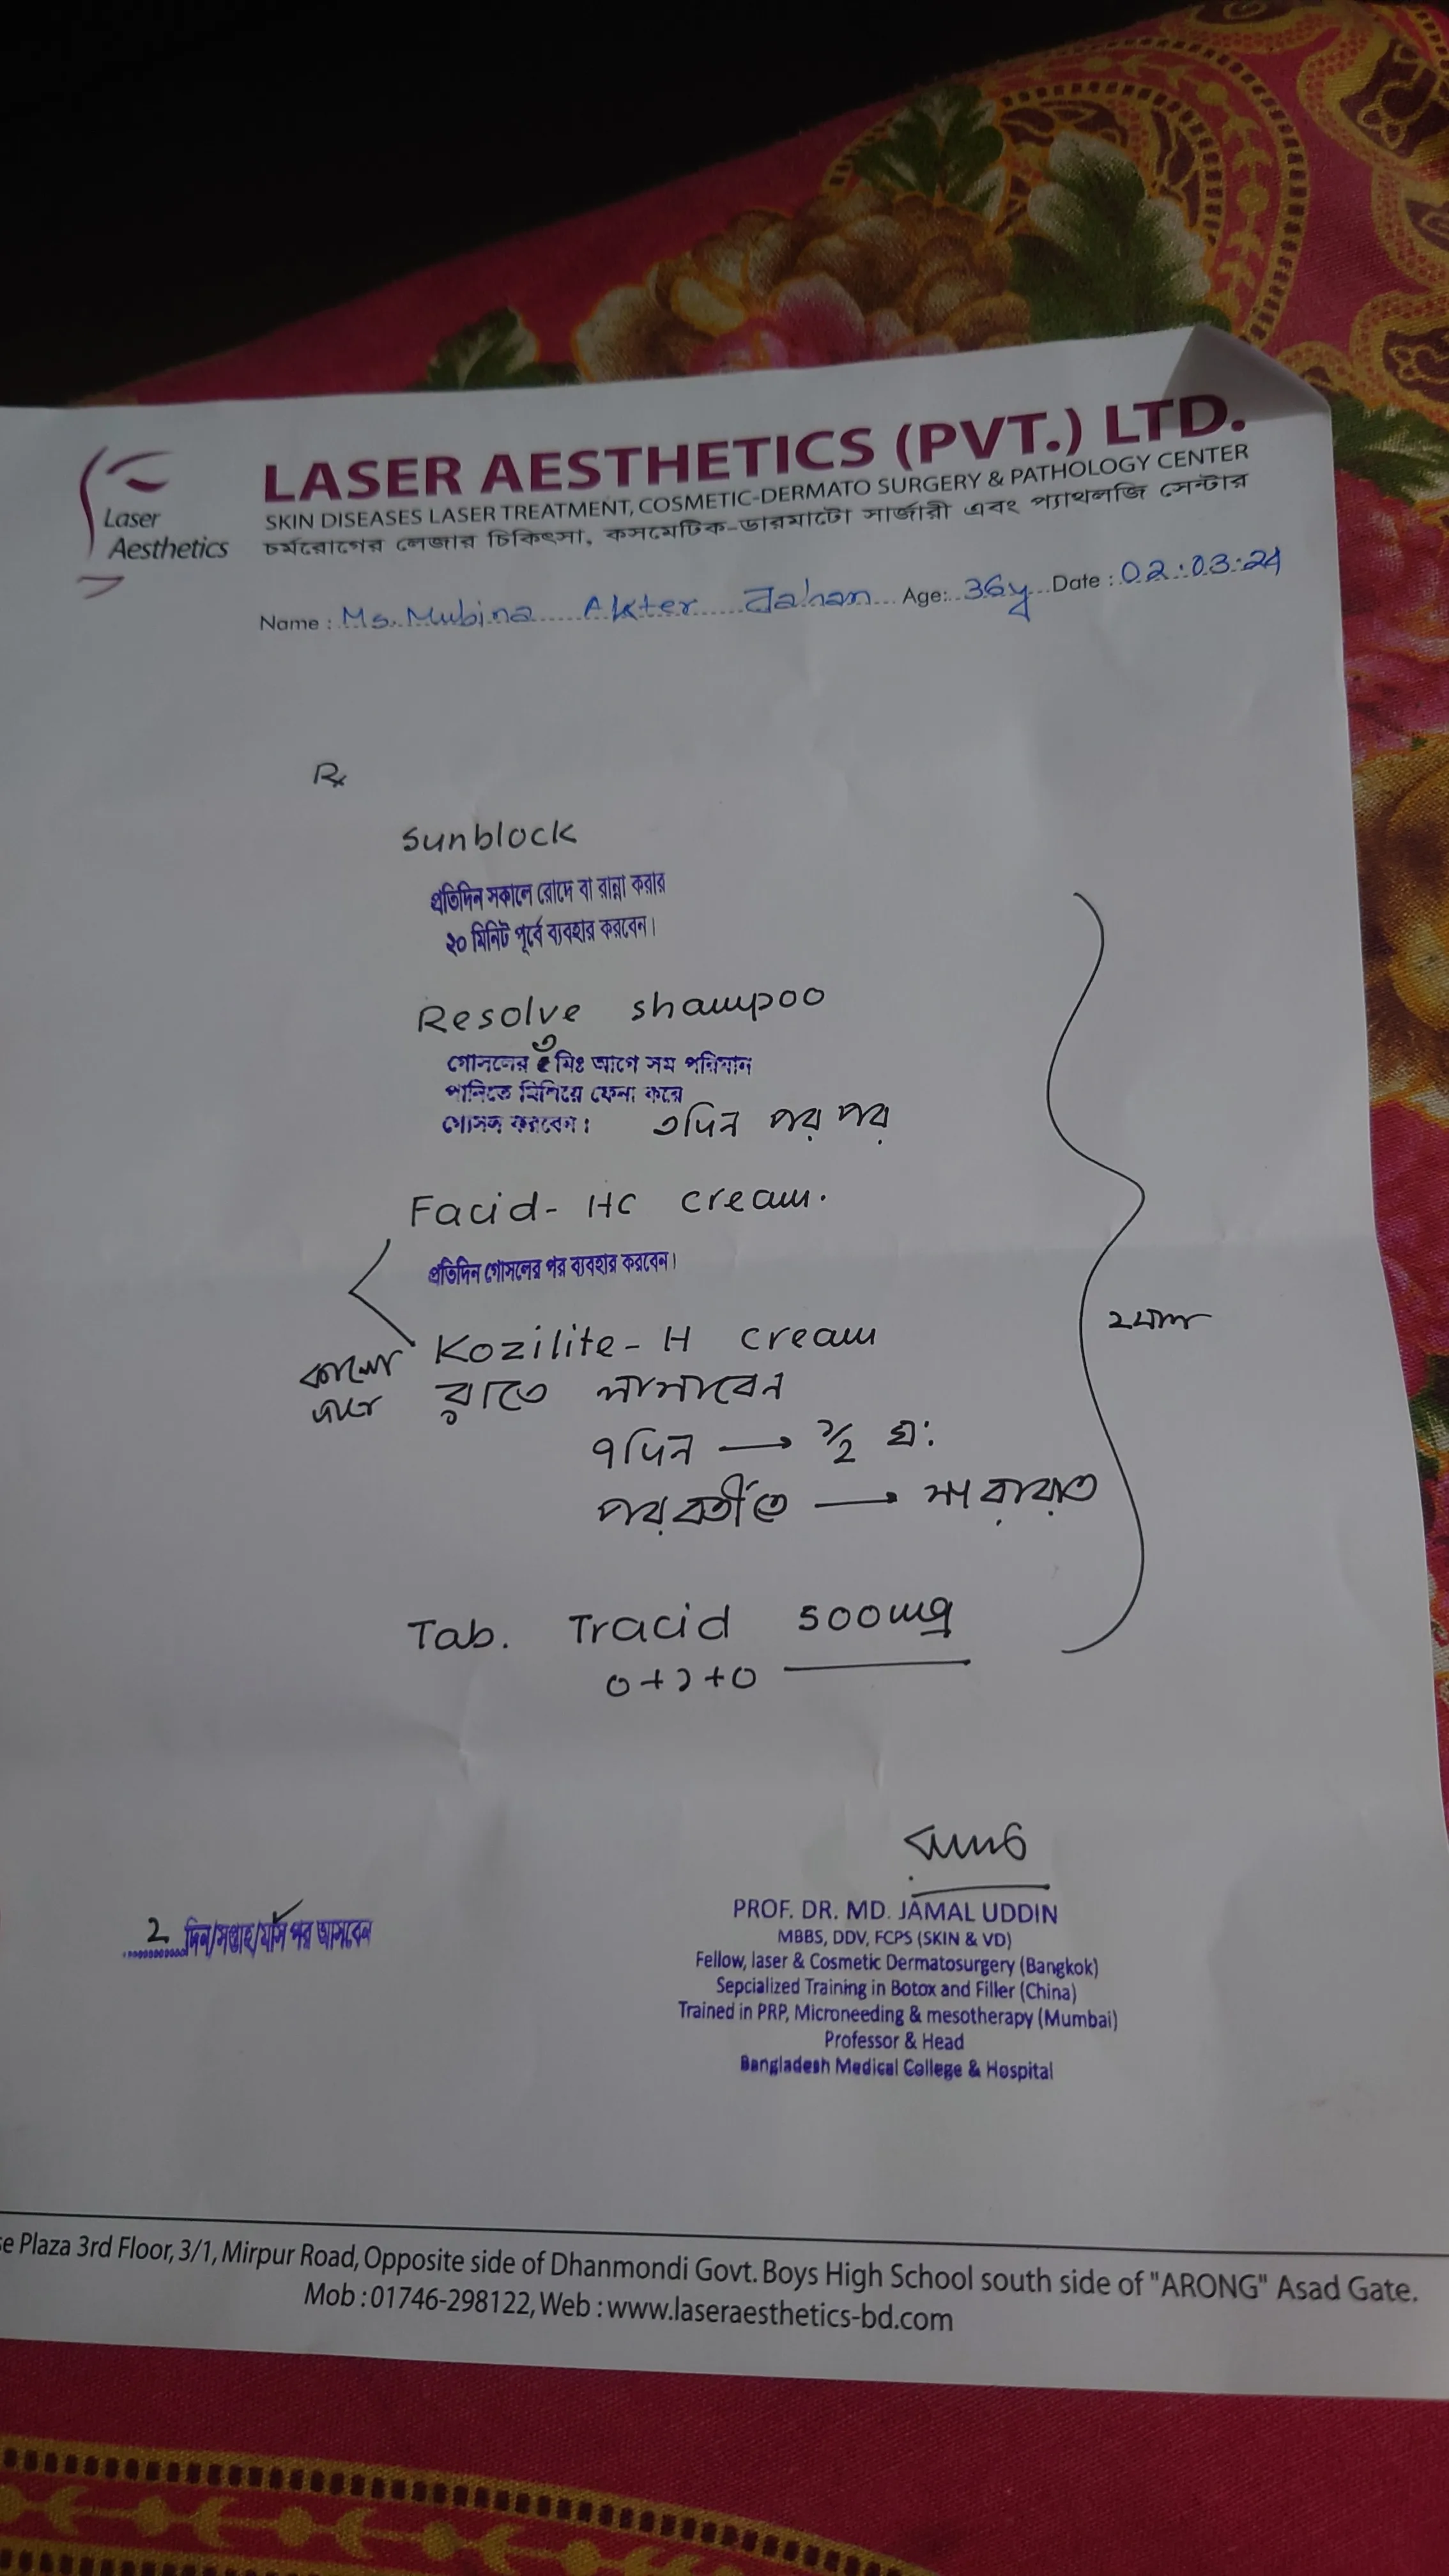 Laser
Aesthetics
LASER AESTHETICS (PVT.) LTD.
SKIN DISEASES LASER TREATMENT, COSMETIC-DERMATO SURGERY & PATHOLOGY CENTER
চর্মরোগের লেজার চিকিৎসা, কসমেটিক-ডারমাটো সার্জারী এবং প্যাথলজি সেন্টার
Name : Ms. Mubina Akter Jahan Age: 36y Date : 02.03.24
Rx
Sunblock
প্রতিদিন সকালে রোদে বা রান্না করার
২০ মিনিট পূর্বে ব্যবহার করবেন।
Resolve shampoo
গোসলের ৩ মিঃ আগে সম পরিমান
পানিতে মিশিয়ে ফেনা করে
গোসল করবেন। ৩দিন পর পর
Facid- HC cream.
প্রতিদিন গোসলের পর ব্যবহার করবেন।
Kozilite- H cream
কালো
রাতে লাগাবেন
৭দিন → ১/২ ঘ:
পরবর্তীতে → সারারাত
২মাস
Tab. Tracid 500mg
0+১+0
2 দিন/সপ্তাহ/মাস পর আসবেন
PROF. DR. MD. JAMAL UDDIN
MBBS, DDV, FCPS (SKIN & VD)
Fellow, laser & Cosmetic Dermatosurgery (Bangkok)
Sepcialized Training in Botox and Filler (China)
Trained in PRP, Microneeding & mesotherapy (Mumbai)
Professor & Head
Bangladesh Medical College & Hospital
Plaza 3rd Floor, 3/1, Mirpur Road, Opposite side of Dhanmondi Govt. Boys High School south side of "ARONG" Asad Gate.
Mob : 01746-298122, Web : www.laseraesthetics-bd.com